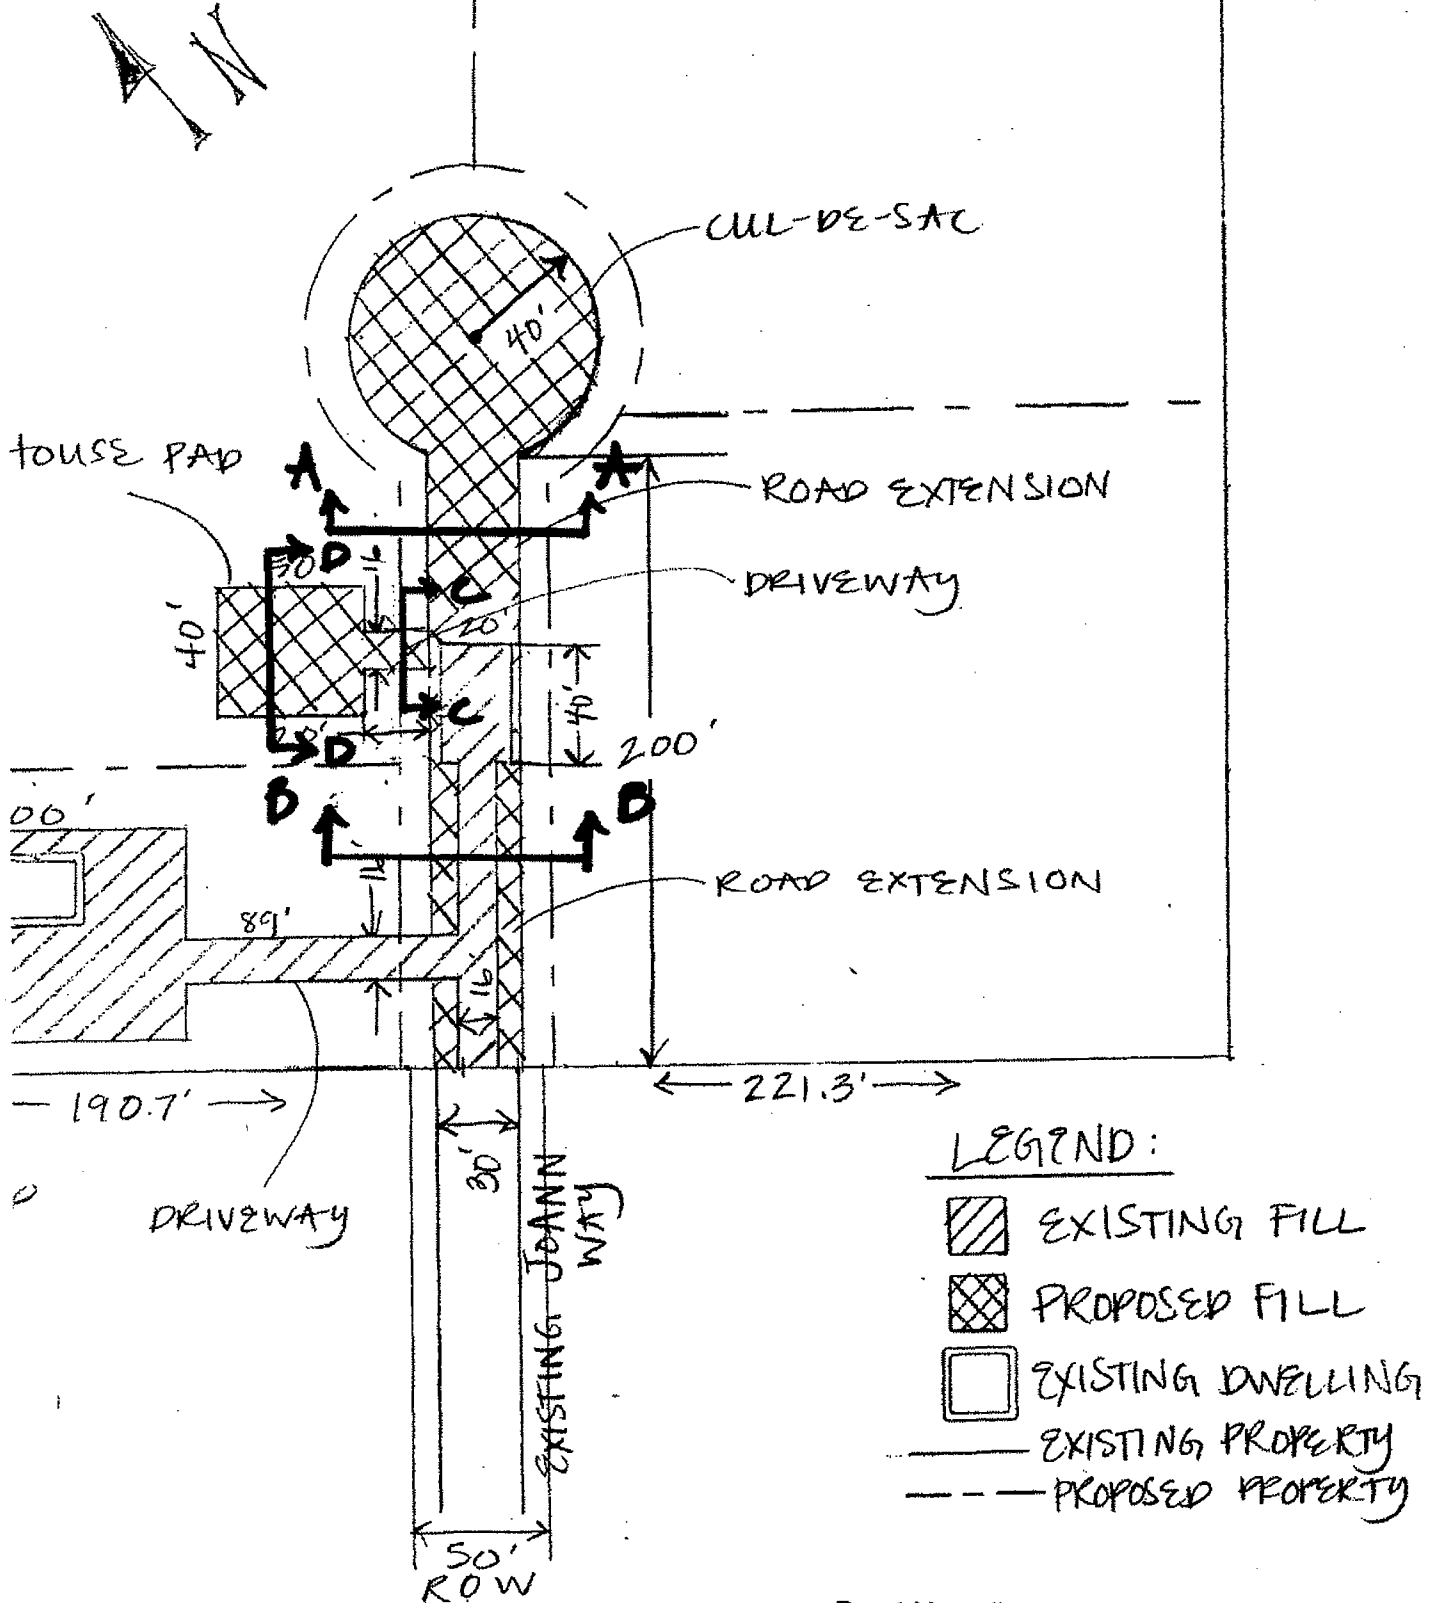 N
CUL-DE-SAC
40'
HOUSE PAD
A
A
ROAD EXTENSION
D
30'
16'
C
DRIVEWAY
20'
40'
C
40'
20'
D
200'
B
B
00'
16'
ROAD EXTENSION
89'
16'
190.7'
221.3'
30'
EXISTING JOANN
WAY
DRIVEWAY
LEGEND:
EXISTING FILL
PROPOSED FILL
EXISTING DWELLING
EXISTING PROPERTY
PROPOSED PROPERTY
50'
ROW